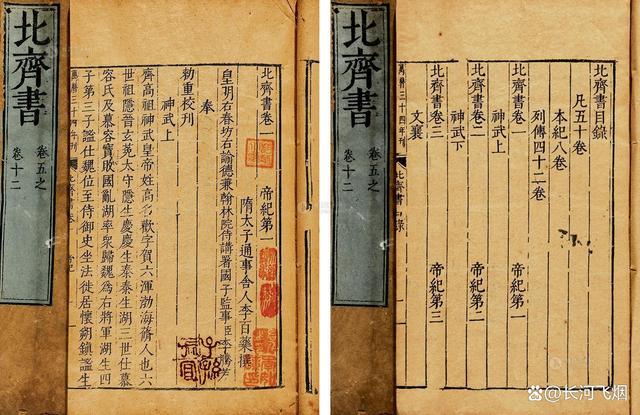 北齊書
卷五之
卷十二
北齊書卷一 帝紀第一
隋太子通事舍人李百藥撰
皇明右春坊右諭德兼翰林院侍講署國子監事臣李騰芳
奉
勅重校刊
神武上
齊高祖神武皇帝姓高名歡字賀六渾渤海蓨人也六
世祖隱晉玄菟太守隱生慶慶生泰泰生湖三世仕慕
容氏及慕容寶敗國亂湖率眾歸魏為右將軍湖生四
子第三子謐仕魏位至侍御史坐法徙居懷朔鎮謐生
萬曆三十四年刊
北齊書卷一
北齊書
卷五之
卷十二
北齊書目錄
凡五十卷
本紀八卷
列傳四十二卷
北齊書卷一 帝紀第一
神武上
北齊書卷二 帝紀第二
神武下
北齊書卷三 帝紀第三
文襄
萬曆三十四年刊
北齊書目錄
@长河飞烟